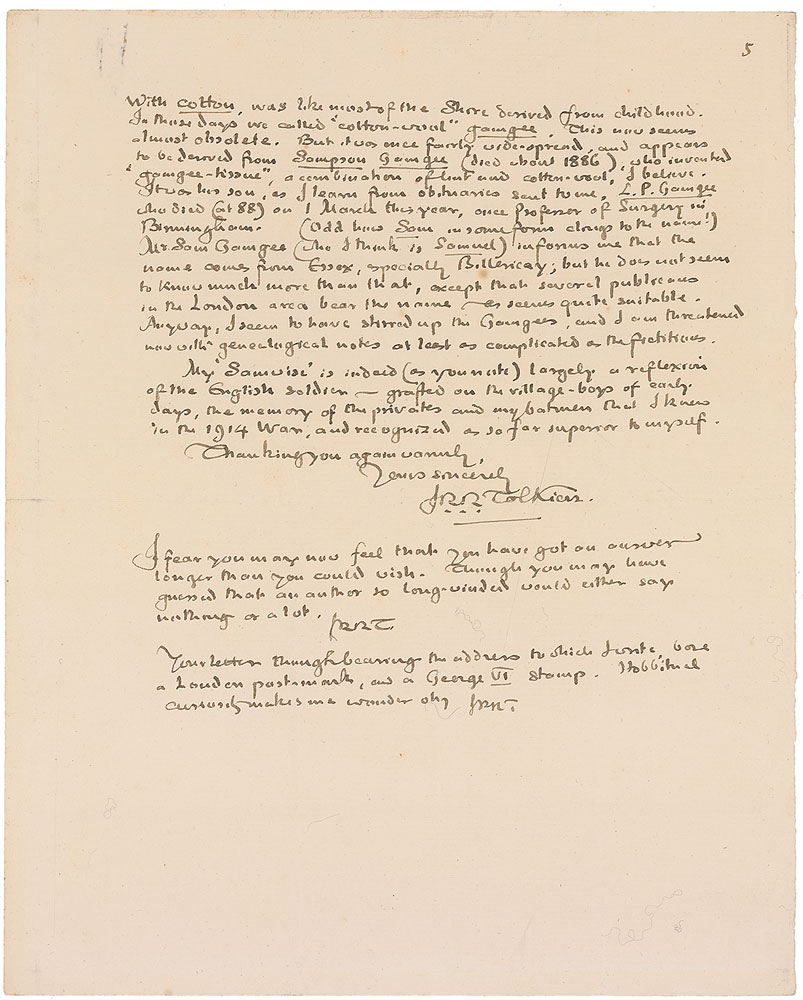 5
With cotton, was like most of the Shire derived from childhood.
In those days we called "cotton-wool" gamgee. This now seems
almost obsolete. But it was once fairly wide-spread, and appears
to be derived from Sampson Gamgee (died about 1886), who invented
"gamgee-tissue", a combination of lint and cotton-wool, I believe.
It was his son, as I learn from obituaries sent to me, L.P. Gamgee
who died (at 88) on 1 March this year, once Professor of Surgery in
Birmingham. (Odd how Sam in some form clings to the name!)
Mr. Sam Gamgee (who I think is Samuel) informs me that the
name comes from Essex, specially Billericay; but he does not seem
to know much more than that, except that several publicans
in the London area bear the name — as seems quite suitable.
Anyway, I seem to have stirred up the Gamgees, and I am threatened
now with genealogical notes at least as complicated as the fictitious.
My 'Samwise' is indeed (as you note) largely a reflexion
of the English soldier — grafted on the village-boys of early
days, the memory of the privates and my batmen that I knew
in the 1914 War, and recognized as so far superior to myself.
Thanking you again warmly,
Yours sincerely
JRR Tolkien.
I fear you may now feel that you have got an answer
longer than you could wish. Though you may have
guessed that an author so long-winded would either say
nothing or a lot. JRRT.
Your letter though bearing the address to which I write, bore
a London post-mark, and a George VI stamp. Hobbitual
curiosity makes me wonder why JRRT.